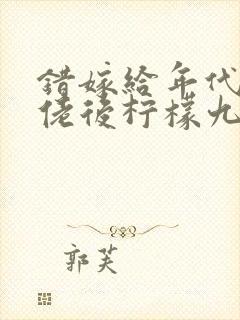 错嫁给年代
佬後柠檬九
郭芙